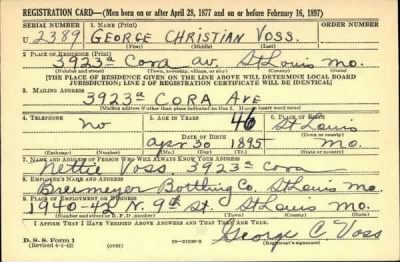 REGISTRATION CARD—(Men born on or after April 28, 1877 and on or before February 16, 1897)
SERIAL NUMBER 1. NAME (Print)
U 2389 GEORGE CHRISTIAN VOSS.
(First) (Middle) (Last)
2. PLACE OF RESIDENCE (Print)
3923a Cora av. St Louis Mo.
(Number and street) (Town, township, village, or city) (County) (State)
[THE PLACE OF RESIDENCE GIVEN ON THE LINE ABOVE WILL DETERMINE LOCAL BOARD
JURISDICTION; LINE 2 OF REGISTRATION CERTIFICATE WILL BE IDENTICAL]
3. MAILING ADDRESS
3923a CORA AVE
[Mailing address if other than place indicated on line 2. If same insert word same]
4. TELEPHONE 5. AGE IN YEARS 46 6. PLACE OF BIRTH
No St Louis
DATE OF BIRTH (Town or county)
Apr 30 1895 Mo.
(Exchange) (Number) (Mo.) (Day) (Yr.) (State or country)
7. NAME AND ADDRESS OF PERSON WHO WILL ALWAYS KNOW YOUR ADDRESS
Nettie Voss 3923a Cora
8. EMPLOYER'S NAME AND ADDRESS
Breimeyer Bottling Co. St Louis Mo.
9. PLACE OF EMPLOYMENT OR BUSINESS
1940-42 N. 9th St. St Louis Mo.
(Number and street or R. F. D. number) (Town) (County) (State)
I AFFIRM THAT I HAVE VERIFIED ABOVE ANSWERS AND THAT THEY ARE TRUE.
D. S. S. Form 1
(Revised 4-1-42) (over) George C Voss
(Registrant's signature)